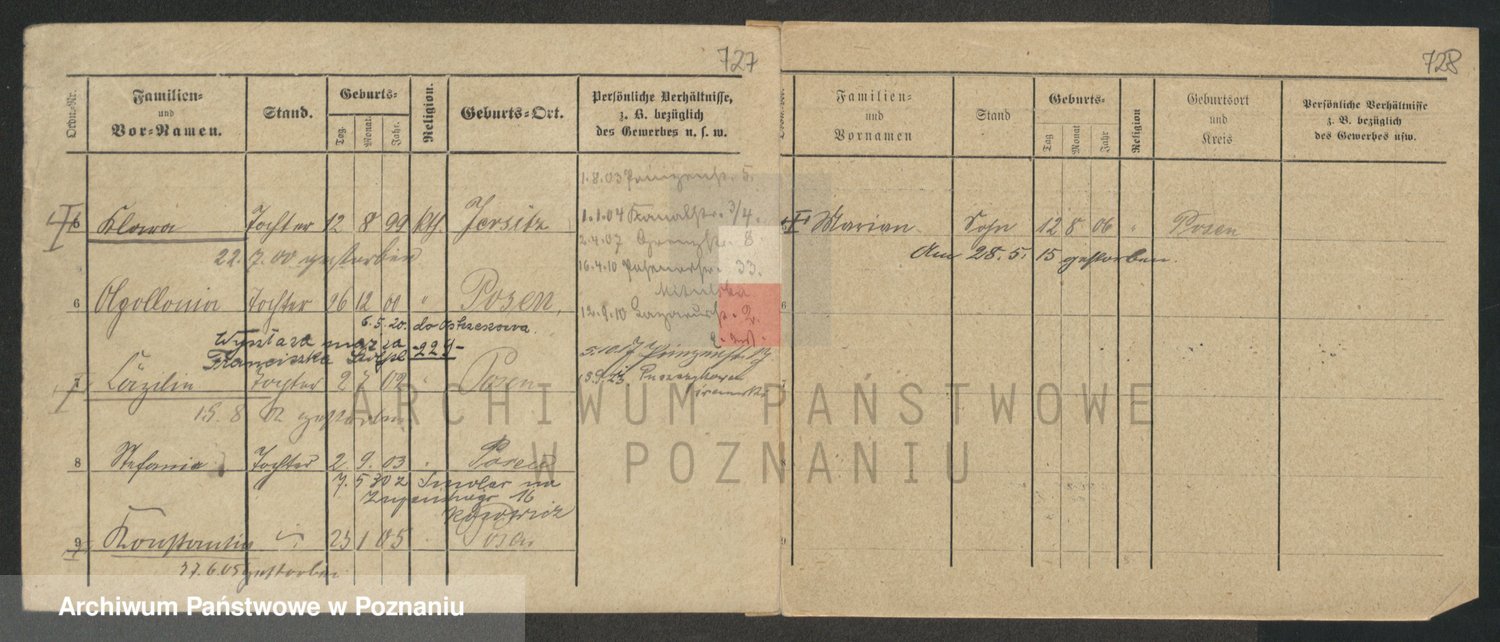 727
Ordn.-Nr.
Familien-
und
Vor-Namen.
Stand.
Geburts-
Tag.
Monat.
Jahr.
Religion.
Geburts-Ort.
Persönliche Verhältnisse,
z. B. bezüglich
des Gewerbes u. s. w.
1.8.03 Prinzenstr. 5.
5 Klara Tochter 12 8 99 kth Jersitz
1.1.04 Kanalstr. 3/4.
22.7.00 gestorben
2.4.07 Grenzstr. 8.
16.4.10 Posenerstr. 33.
6 Apollonia Tochter 26 12 00 " Posen,
12.9.10 Lazarusstr. 2.
6.5.20. do Ostrzeszowa.
Franciszka 229-
7 Cäzilie Tochter 2 7 02 " Posen
13.9.23
15.8 02 gestorben
8 Stefanie Tochter 2. 9. 03 Posen
7.5.30 z Smolar na
16
9 Konstantin 23 1 05 Posen
27.6.05 gestorben
728
Familien-
und
Vornamen
Stand
Geburts-
Tag
Monat
Jahr
Religion
Geburtsort
und
Kreis
Persönliche Verhältnisse
z. B. bezüglich
des Gewerbes usw.
Marian Sohn 12 8 06 " Posen
Am 28.5.15 gestorben.
6
8
9
ARCHIWUM PAŃSTWOWE
W POZNANIU
Archiwum Państwowe w Poznaniu